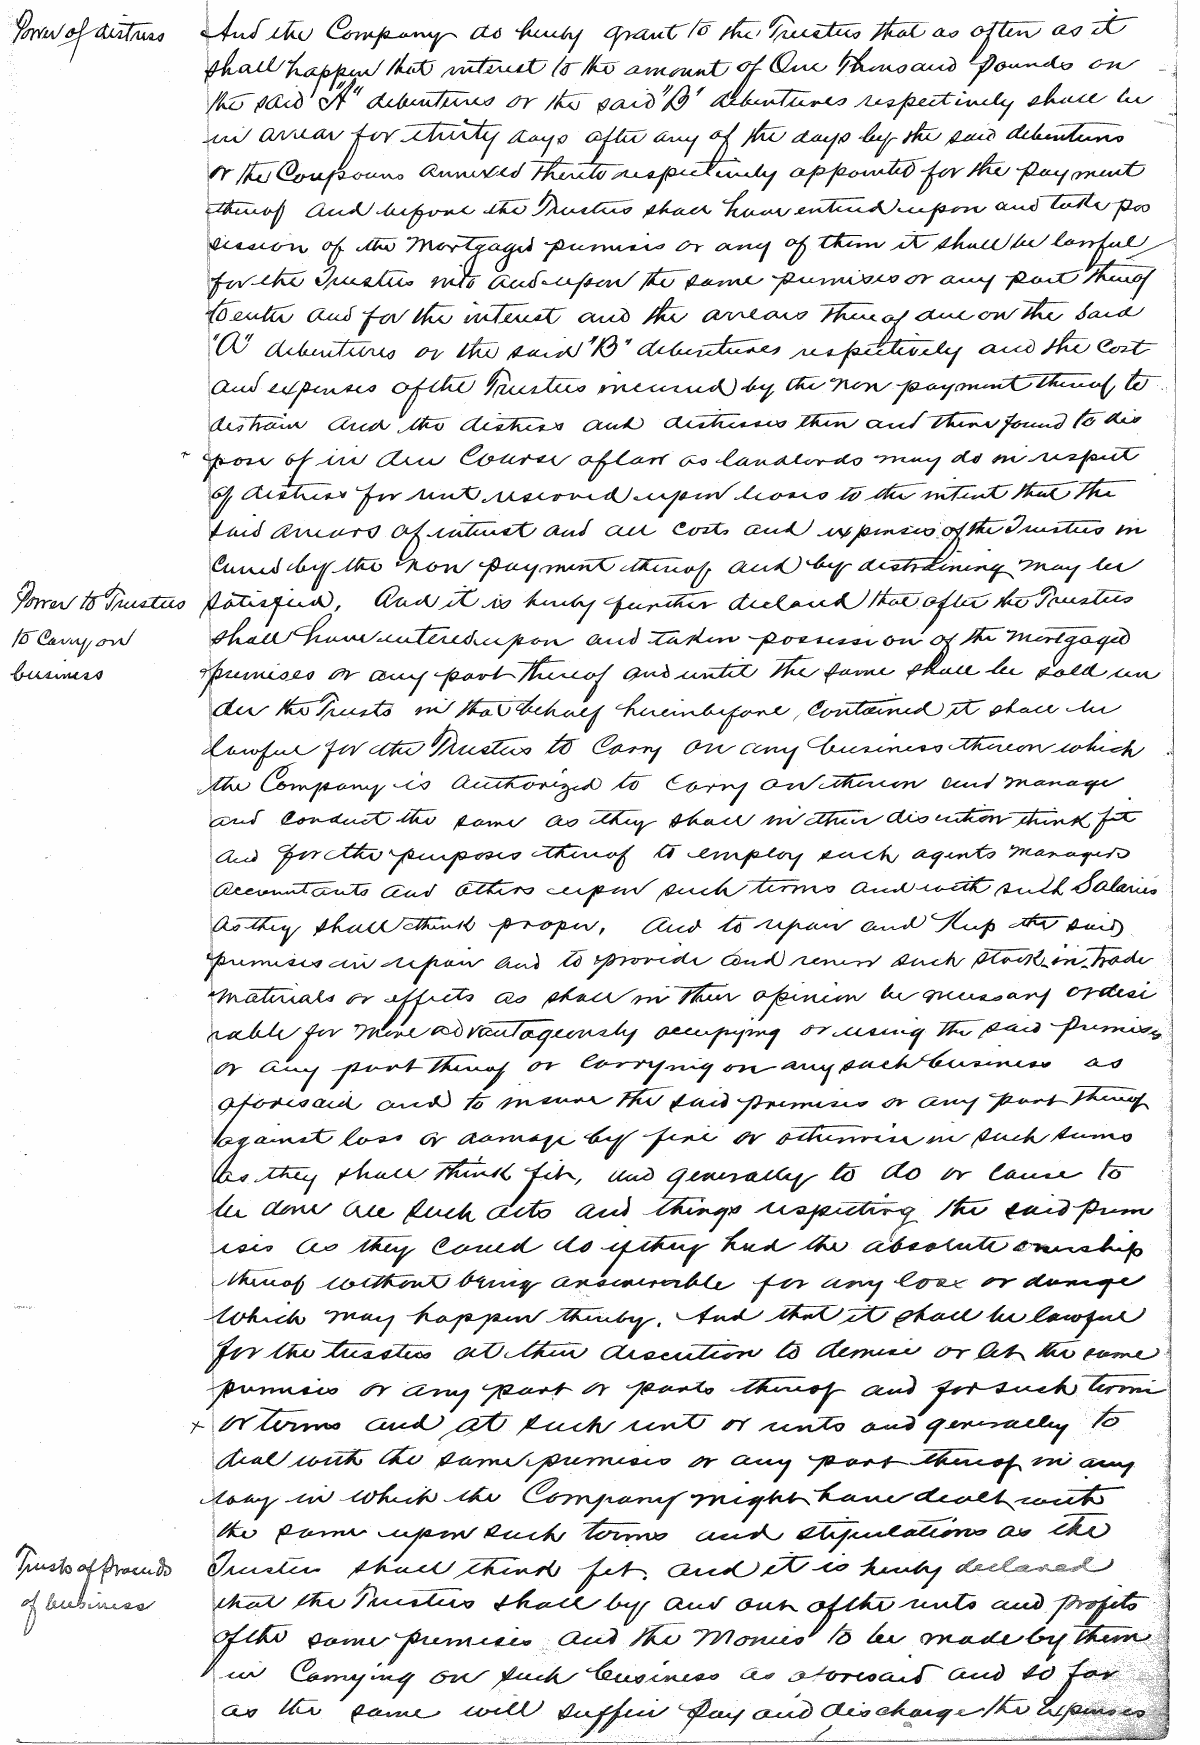 Power of distress
And the Company do hereby grant to the Trustees that as often as it
shall happen that interest to the amount of One Thousand pounds on
the said "A" debentures or the said "B" debentures respectively shall be
in arrear for thirty days after any of the days by the said debentures
or the Coupouns annexed thereto respectively appointed for the payment
thereof and before the Trustees shall have entered upon and take pos
session of the Mortgaged premises or any of them it shall be lawful
for the Trustees into and upon the same premises or any part thereof
to enter and for the interest and the arrears thereof due on the said
"A" debentures or the said "B" debentures respectively and the Cost
and expenses of the Trustees incurred by the non payment thereof to
distrain and the distress and distresses then and there found to dis
pose of in due Course of law as landlords may do in respect
of distress for rent reserved upon leases to the intent that the
said arrears of interest and all costs and expenses of the Trustees in
curred by the non payment thereof and by distraining may be
Power to Trustees
to Carry on
business
satisfied. And it is hereby further declared that after the Trustees
shall have entered upon and taken possession of the Mortgaged
premises or any part thereof and until the same shall be sold un
der the Trusts in that behalf hereinbefore contained it shall be
lawful for the Trustees to Carry on any business thereon which
the Company is authorized to carry on thereon and manage
and conduct the same as they shall in their discretion think fit
and for the purposes thereof to employ such agents Managers
accountants and others upon such terms and with such Salaries
as they shall think proper. And to repair and Keep the said
premises in repair and to provide and renew such stock-in-trade
materials or effects as shall in their opinion be necessary or desi
rable for more advantageously occupying or using the said premises
or any part thereof or Carrying on any such business as
aforesaid and to insure the said premises or any part thereof
against loss or damage by fire or otherwise in such sums
as they shall think fit, and generally to do or cause to
be done all such acts and things respecting the said prem
ises as they could do if they had the absolute ownership
thereof without being answerable for any loss or damage
which may happen thereby. And that it shall be lawful
for the trustees at their discretion to demise or let the same
premises or any part or parts thereof and for such term
x or terms and at such rent or rents and generally to
deal with the same premises or any part thereof in any
way in which the Company might have dealt with
the same upon such terms and stipulations as the
Trusts of proceeds
of business
Trustees shall think fit. and it is hereby declared
that the Trustees shall by and out of the rents and profits
of the same premises and the Monies to be made by them
in Carrying on such business as aforesaid and so far
as the same will suffice pay and discharge the Expenses